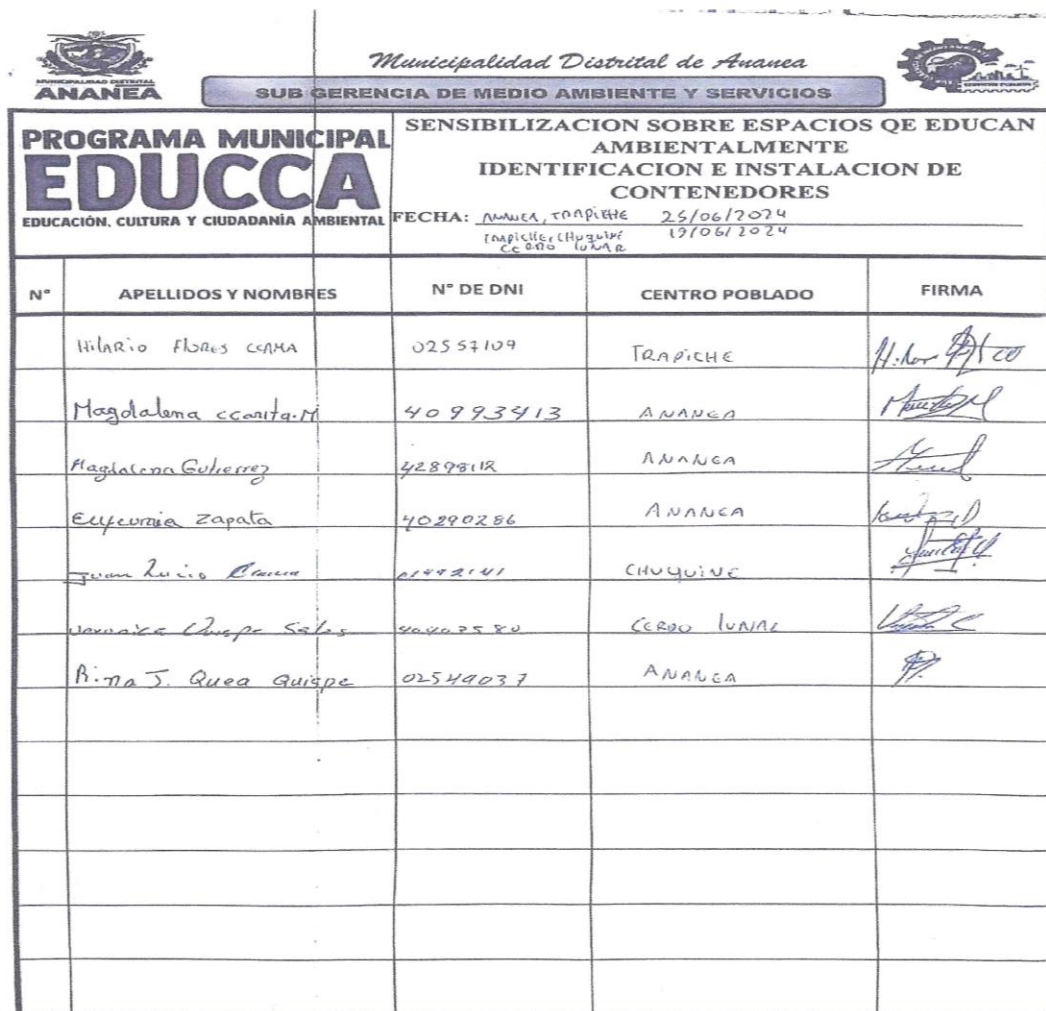 Municipalidad Distrital de Ananea
MUNICIPALIDAD DISTRITAL
ANANEA
SUB GERENCIA DE MEDIO AMBIENTE Y SERVICIOS
PROGRAMA MUNICIPAL
EDUCCA
EDUCACIÓN, CULTURA Y CIUDADANÍA AMBIENTAL
SENSIBILIZACION SOBRE ESPACIOS QE EDUCAN
AMBIENTALMENTE
IDENTIFICACION E INSTALACION DE
CONTENEDORES
FECHA: ANANEA, TRAPICHE 25/06/2024
TRAPICHE, CHUQUINE 19/06/2024
CERRO LUNAR
N° APELLIDOS Y NOMBRES N° DE DNI CENTRO POBLADO FIRMA
HilARio FLORES CCAMA 02557109 TRAPICHE
Magdalena ccanita.M 40993413 ANANEA
Magdalena Gutierrez 42898112 ANANEA
Zapata 40290286 ANANEA
Juan Lucio CHUQUINE
Quispe CERRO LUNAR
Rina J. Quea Quispe 02549037 ANANEA